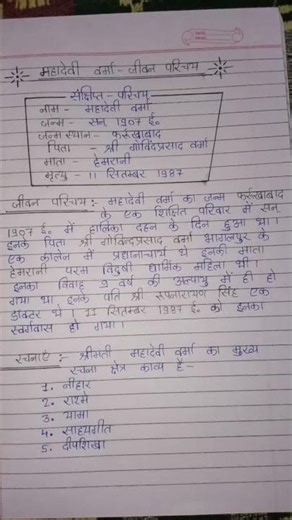 महादेवी वर्मा - जीवन परिचय
संक्षिप्त - परिचय
नाम - महादेवी वर्मा
जन्म - सन् 1907 ई०
जन्म स्थान - फर्रुखाबाद
पिता - श्री गोविंदप्रसाद वर्मा
माता - हेमरानी
मृत्यु - 11 सितम्बर 1987
जीवन परिचय :- महादेवी वर्मा का जन्म फर्रुखाबाद
के एक शिक्षित परिवार में सन्
1907 ई० में होलिका दहन के दिन हुआ था।
इनके पिता श्री गोविन्दप्रसाद वर्मा भागलपुर के
एक कॉलेज में प्रधानाचार्य थे इनकी माता
हेमरानी परम विदुषी धार्मिक महिला थी।
इनका विवाह 9 वर्ष की अल्पायु में ही हो
गया था। इनके पति श्री रूपनारायण सिंह एक
डॉक्टर थे। 11 सितम्बर 1987 ई० को इनका
स्वर्गवास हो गया।
रचनाएँ :- श्रीमती महादेवी वर्मा का मुख्य
रचना क्षेत्र काव्य है-
1. नीहार
2. रश्मि
3. यामा
4. सांध्यगीत
5. दीपशिखा